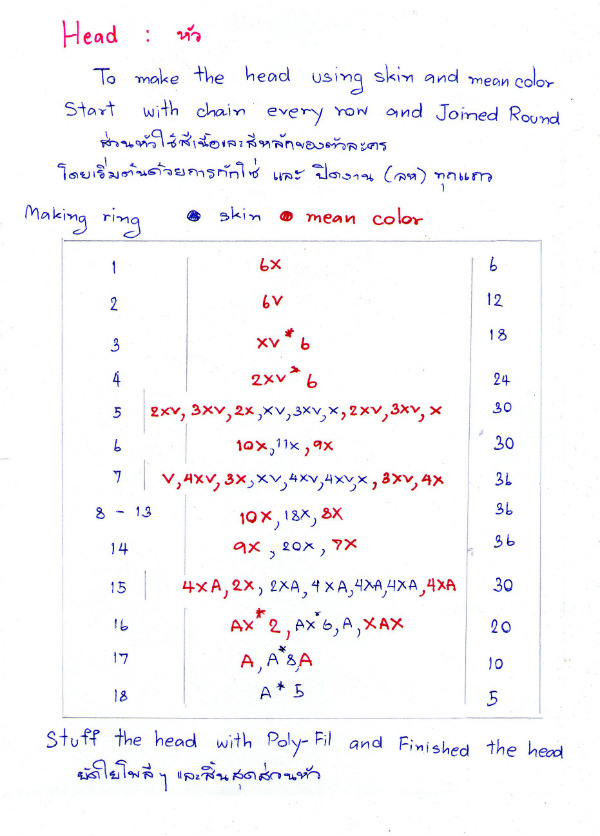 Head : หัว
To make the head using skin and mean color
Start with chain every row and Joined Round
ส่วนหัวใช้สีเนื้อและสีหลักของตัวละคร
โดยเริ่มต้นด้วยการถักโซ่ และ ปิดงาน (ลห) ทุกแถว
Making ring ● skin ● mean color
1 6X 6
2 6V 12
3 XV * 6 18
4 2XV * 6 24
5 2XV, 3XV, 2X, XV, 3XV, X, 2XV, 3XV, X 30
6 10X, 11X, 9X 30
7 V, 4XV, 3X, XV, 4XV, 4XV, X, 3XV, 4X 36
8 - 13 10X, 18X, 8X 36
14 9X, 20X, 7X 36
15 4XA, 2X, 2XA, 4XA, 4XA, 4XA, 4XA 30
16 AX * 2, AX * 6, A, XAX 20
17 A, A * 8, A 10
18 A * 5 5
Stuff the head with Poly-Fil and Finished the head
ยัดใยโพลีๆ และสิ้นสุดส่วนหัว